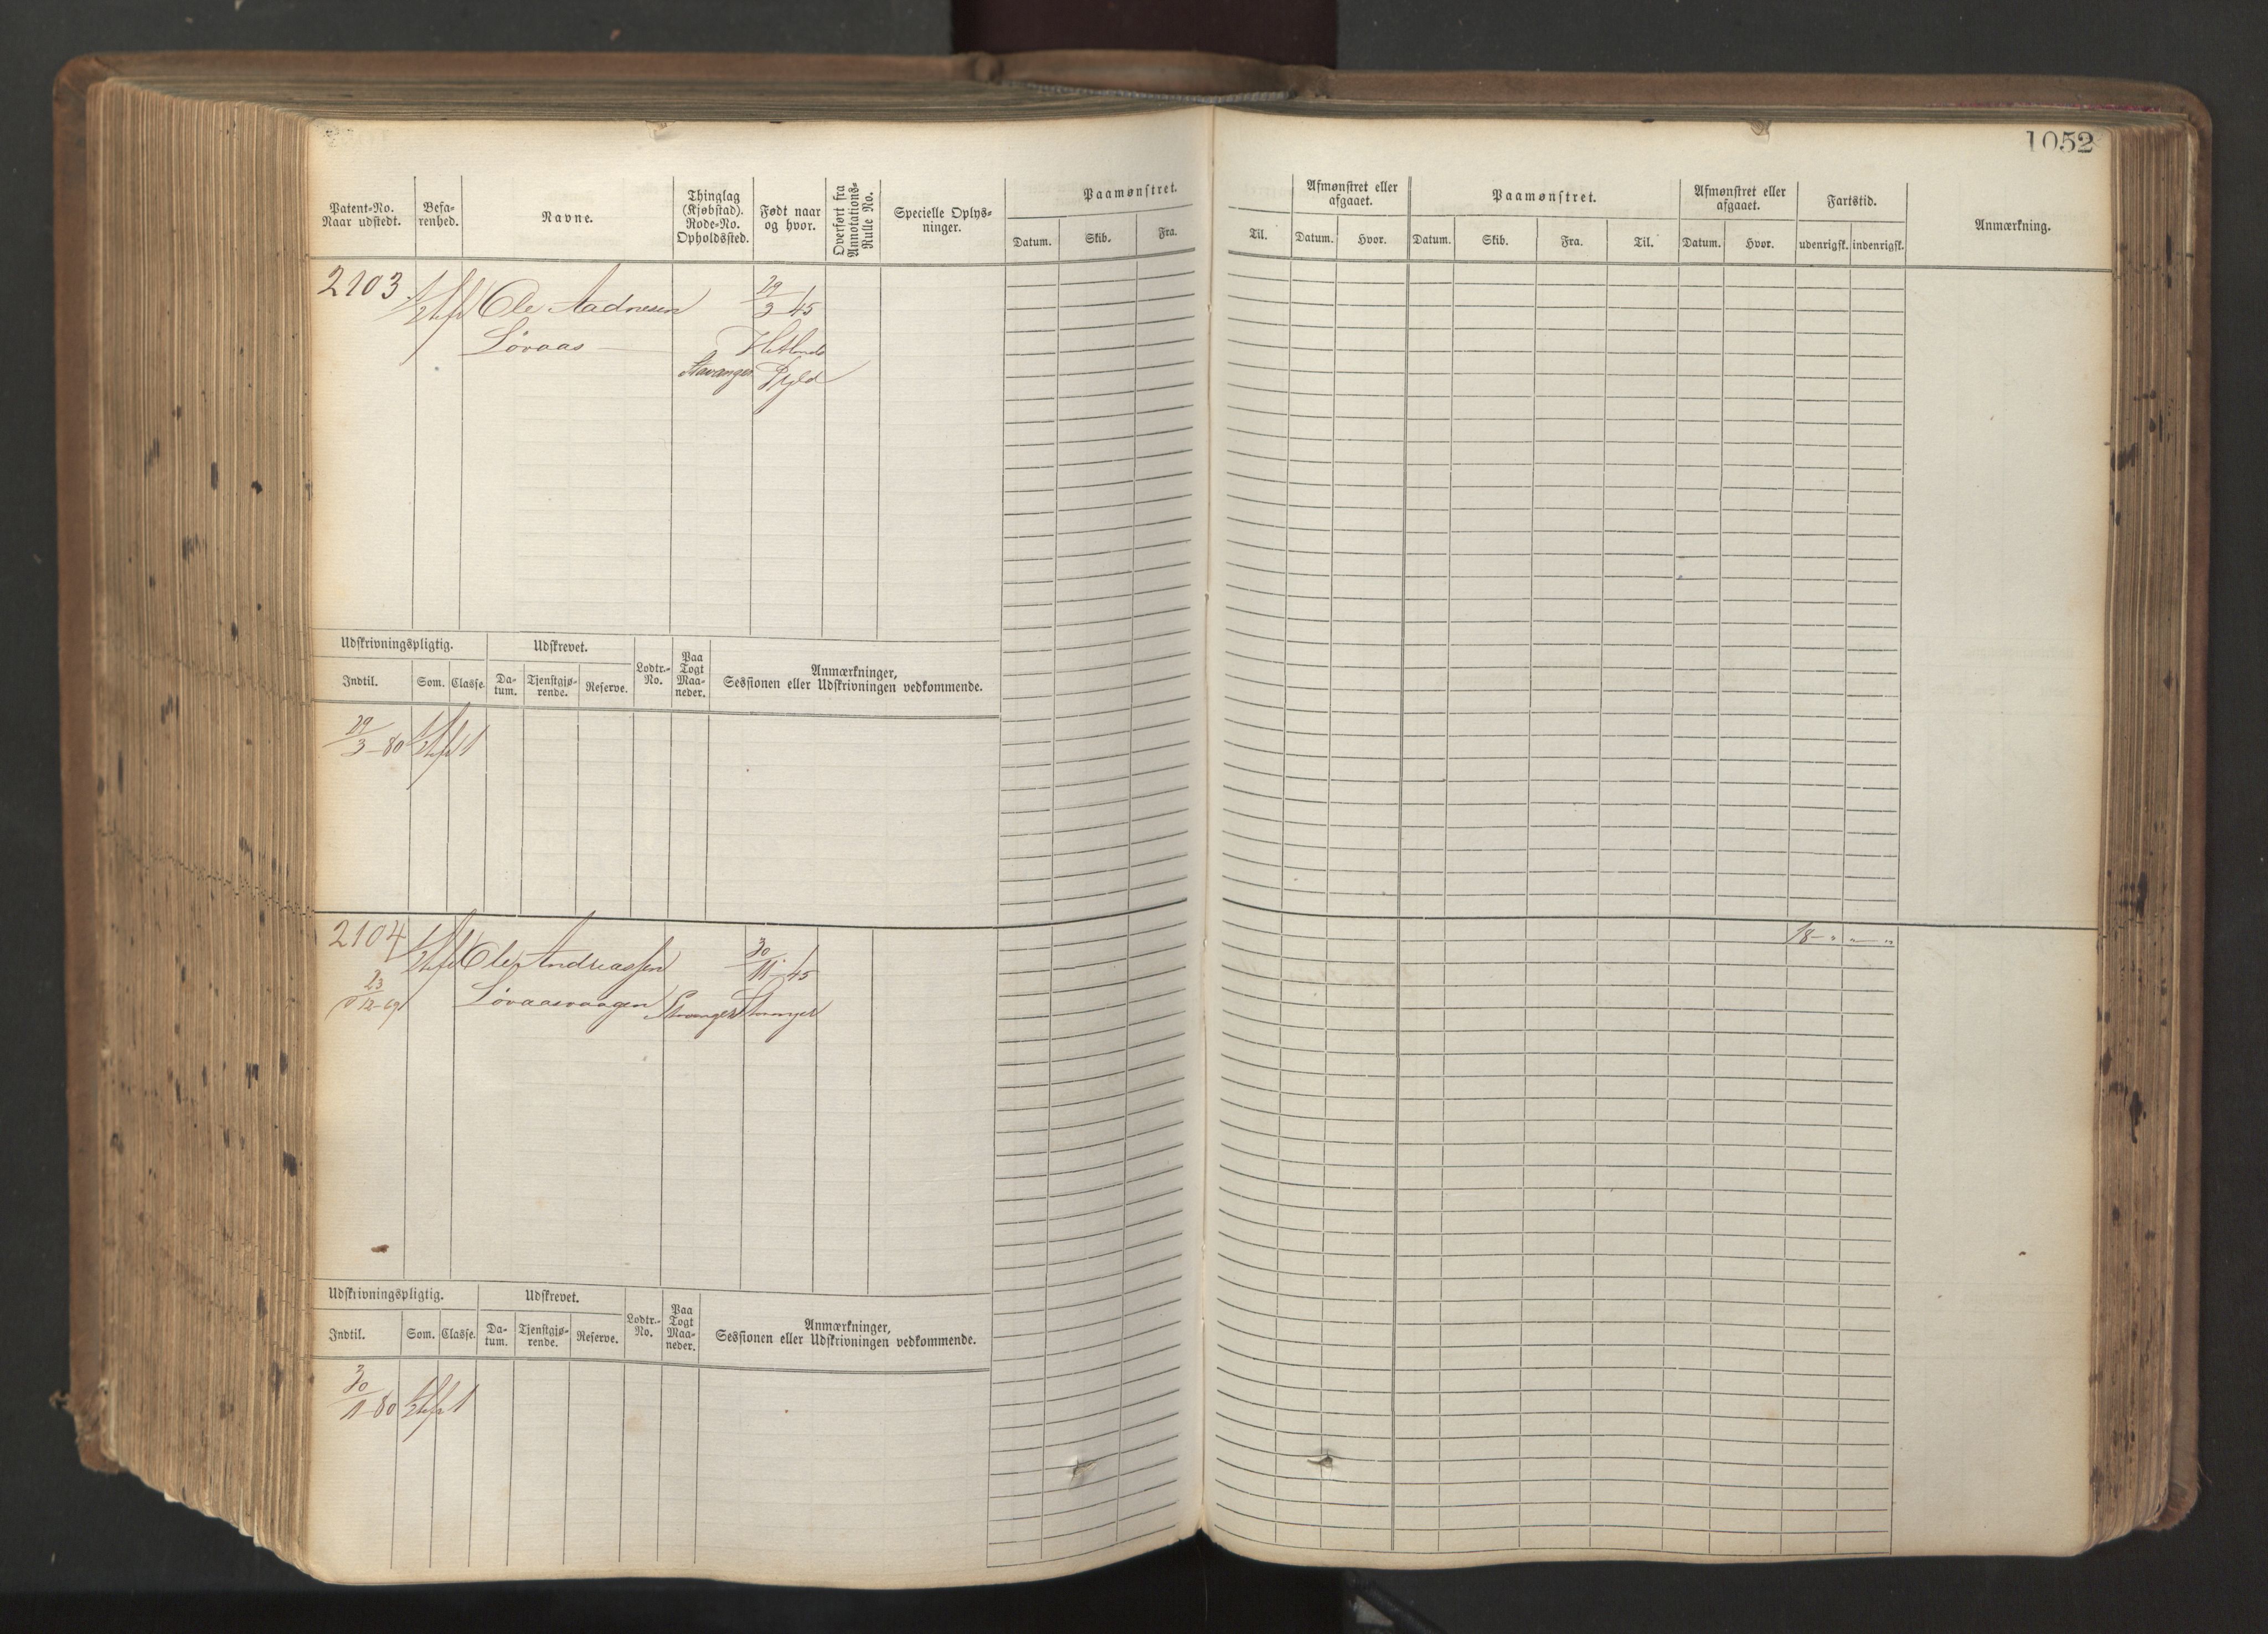 1052
Patent-No. Naar udstedt.
Befa-renhed.
Navne.
Thinglag (Kjøbstad). Rode-No. Opholdssted.
Født naar og hvor.
Overført fra Annotations-Rulle No.
Specielle Oplys-ninger.
Paamønstret.
Datum. Skib. Fra.
Til.
Afmønstret eller afgaaet.
Datum. Hvor.
Paamønstret.
Datum. Skib. Fra. Til.
Afmønstret eller afgaaet.
Datum. Hvor.
Fartstid.
udenrigsk. indenrigsk.
Anmærkning.
2103 Ole Aadnesen 29/3 45
Løvaas
Stavanger
Udskrivningspligtig. Udskrevet. Lodtr.-No. Paa Togt Maa-neder. Anmærkninger, Sessionen eller Udskrivningen vedkommende.
Indtil. Som. Classe. Da-tum. Tjenstgjø-rende. Reserve.
29/3-80 1
2104 Ole Andreassen 30/11-45
23/12-69 Løvaasvaagen Stavanger Stavanger
18 - " - "
Udskrivningspligtig. Udskrevet. Lodtr.-No. Paa Togt Maa-neder. Anmærkninger, Sessionen eller Udskrivningen vedkommende.
Indtil. Som. Classe. Da-tum. Tjenstgjø-rende. Reserve.
30/1-80 1